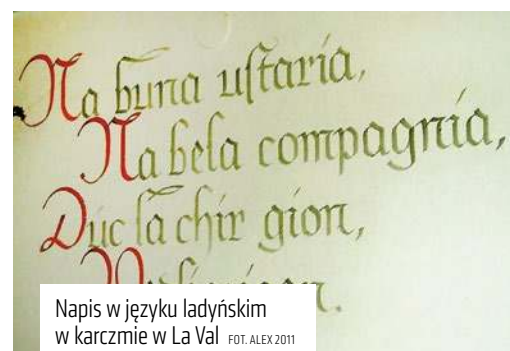 Na buna uſtaria,
Na bela compagnia,
Düc la chir gion,
Napis w języku ladyńskim
w karczmie w La Val FOT. ALEX 2011